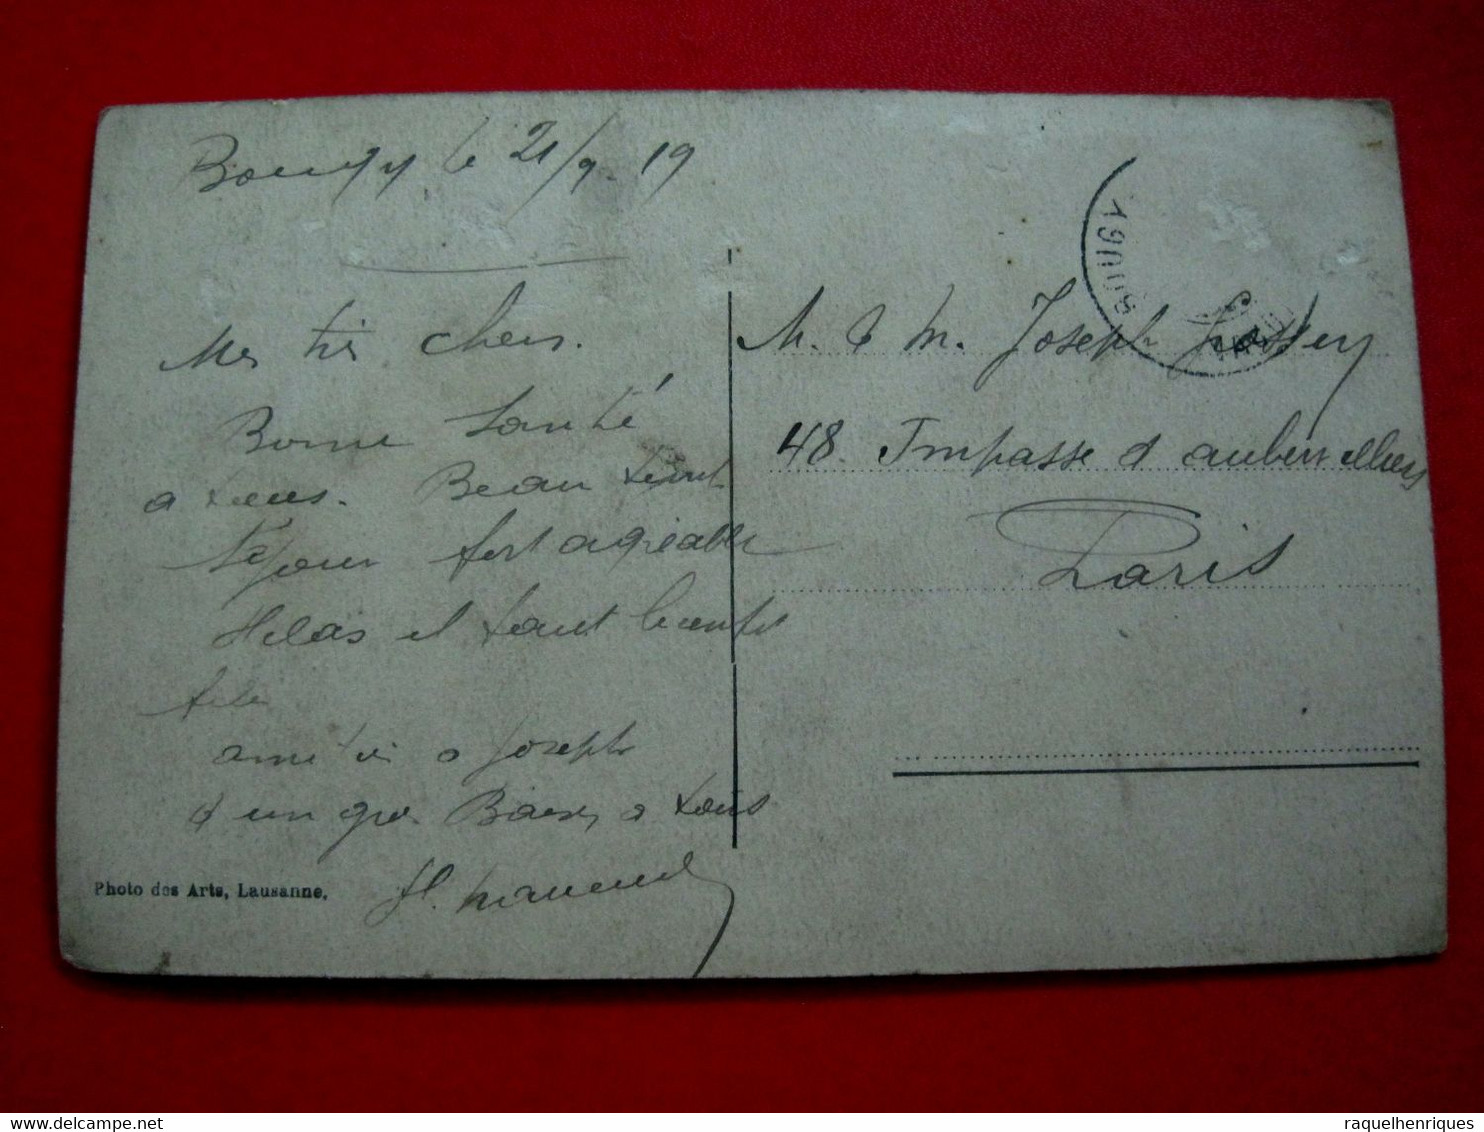 Bougy le 21/9. 19
Mes très chers.
Bonne Santé
a tous. Beau temps
Séjour fort agréable
Helas il faut bientot
filer
amitiés a Joseph
& un gros Baiser a tous
M. & M. Joseph
48. Impasse d aubervilliers
Paris
Photo des Arts, Lausanne.
delcampe.net
raquelhenriques